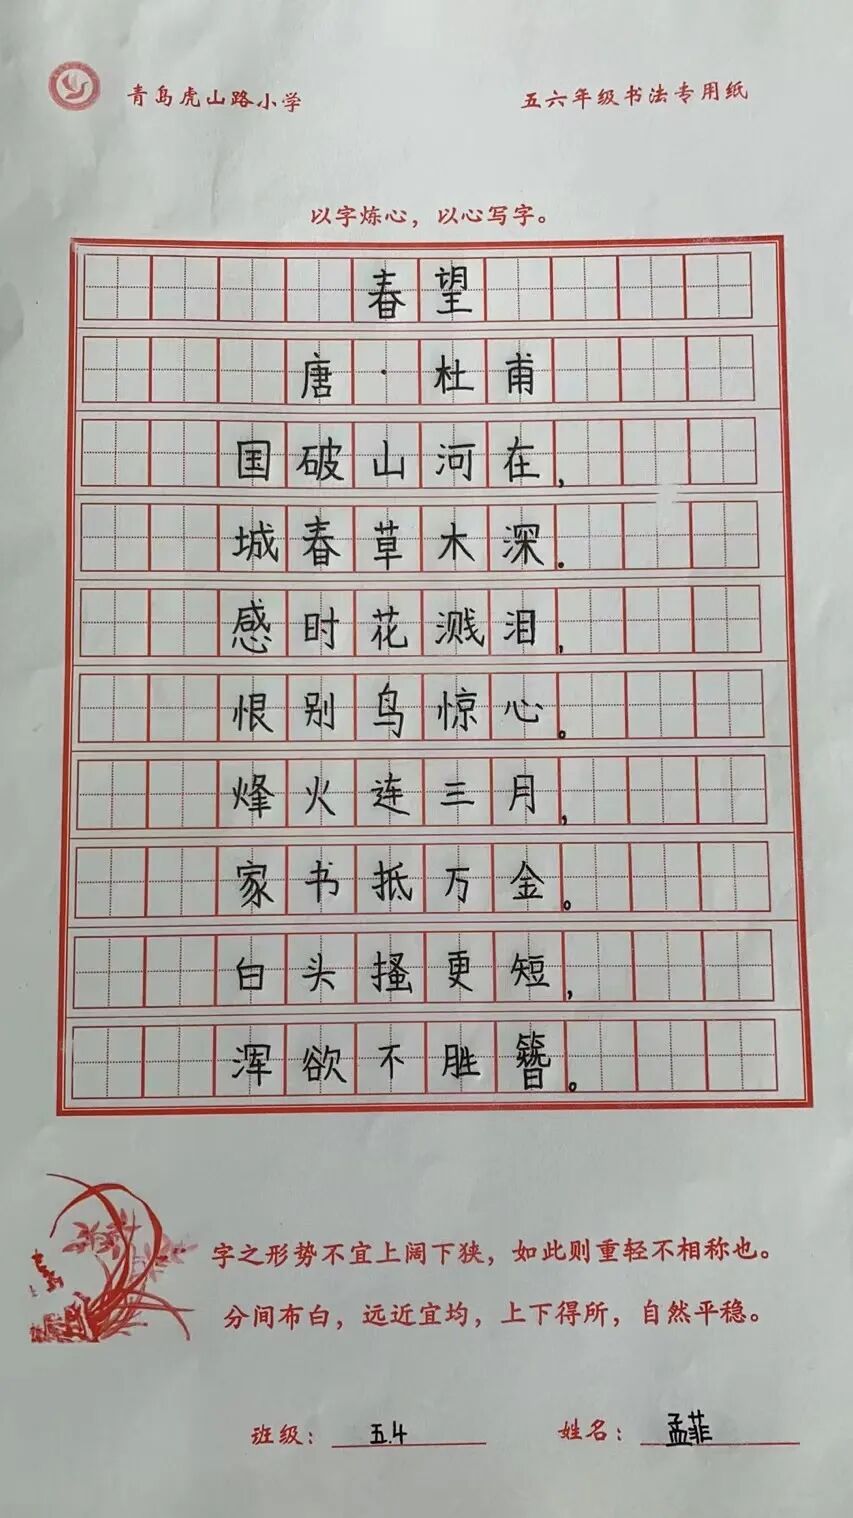 青岛虎山路小学
五六年级书法专用纸
以字炼心，以心写字。
春望
唐·杜甫
国破山河在，
城春草木深.
感时花溅泪，
恨别鸟惊心。
烽火连三月，
家书抵万金。
白头搔更短，
浑欲不胜簪。
字之形势不宜上阔下狭，如此则重轻不相称也。
分间布白，远近宜均，上下得所，自然平稳。
班级：五.4
姓名：孟菲